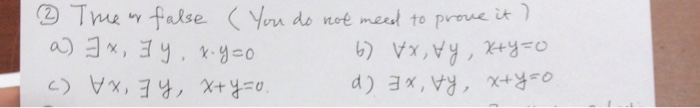 ② True or false ( You do not need to prove it )
a) ∃x, ∃y, x·y=0 b) ∀x, ∀y, x+y=0
c) ∀x, ∃y, x+y=0. d) ∃x, ∀y, x+y=0